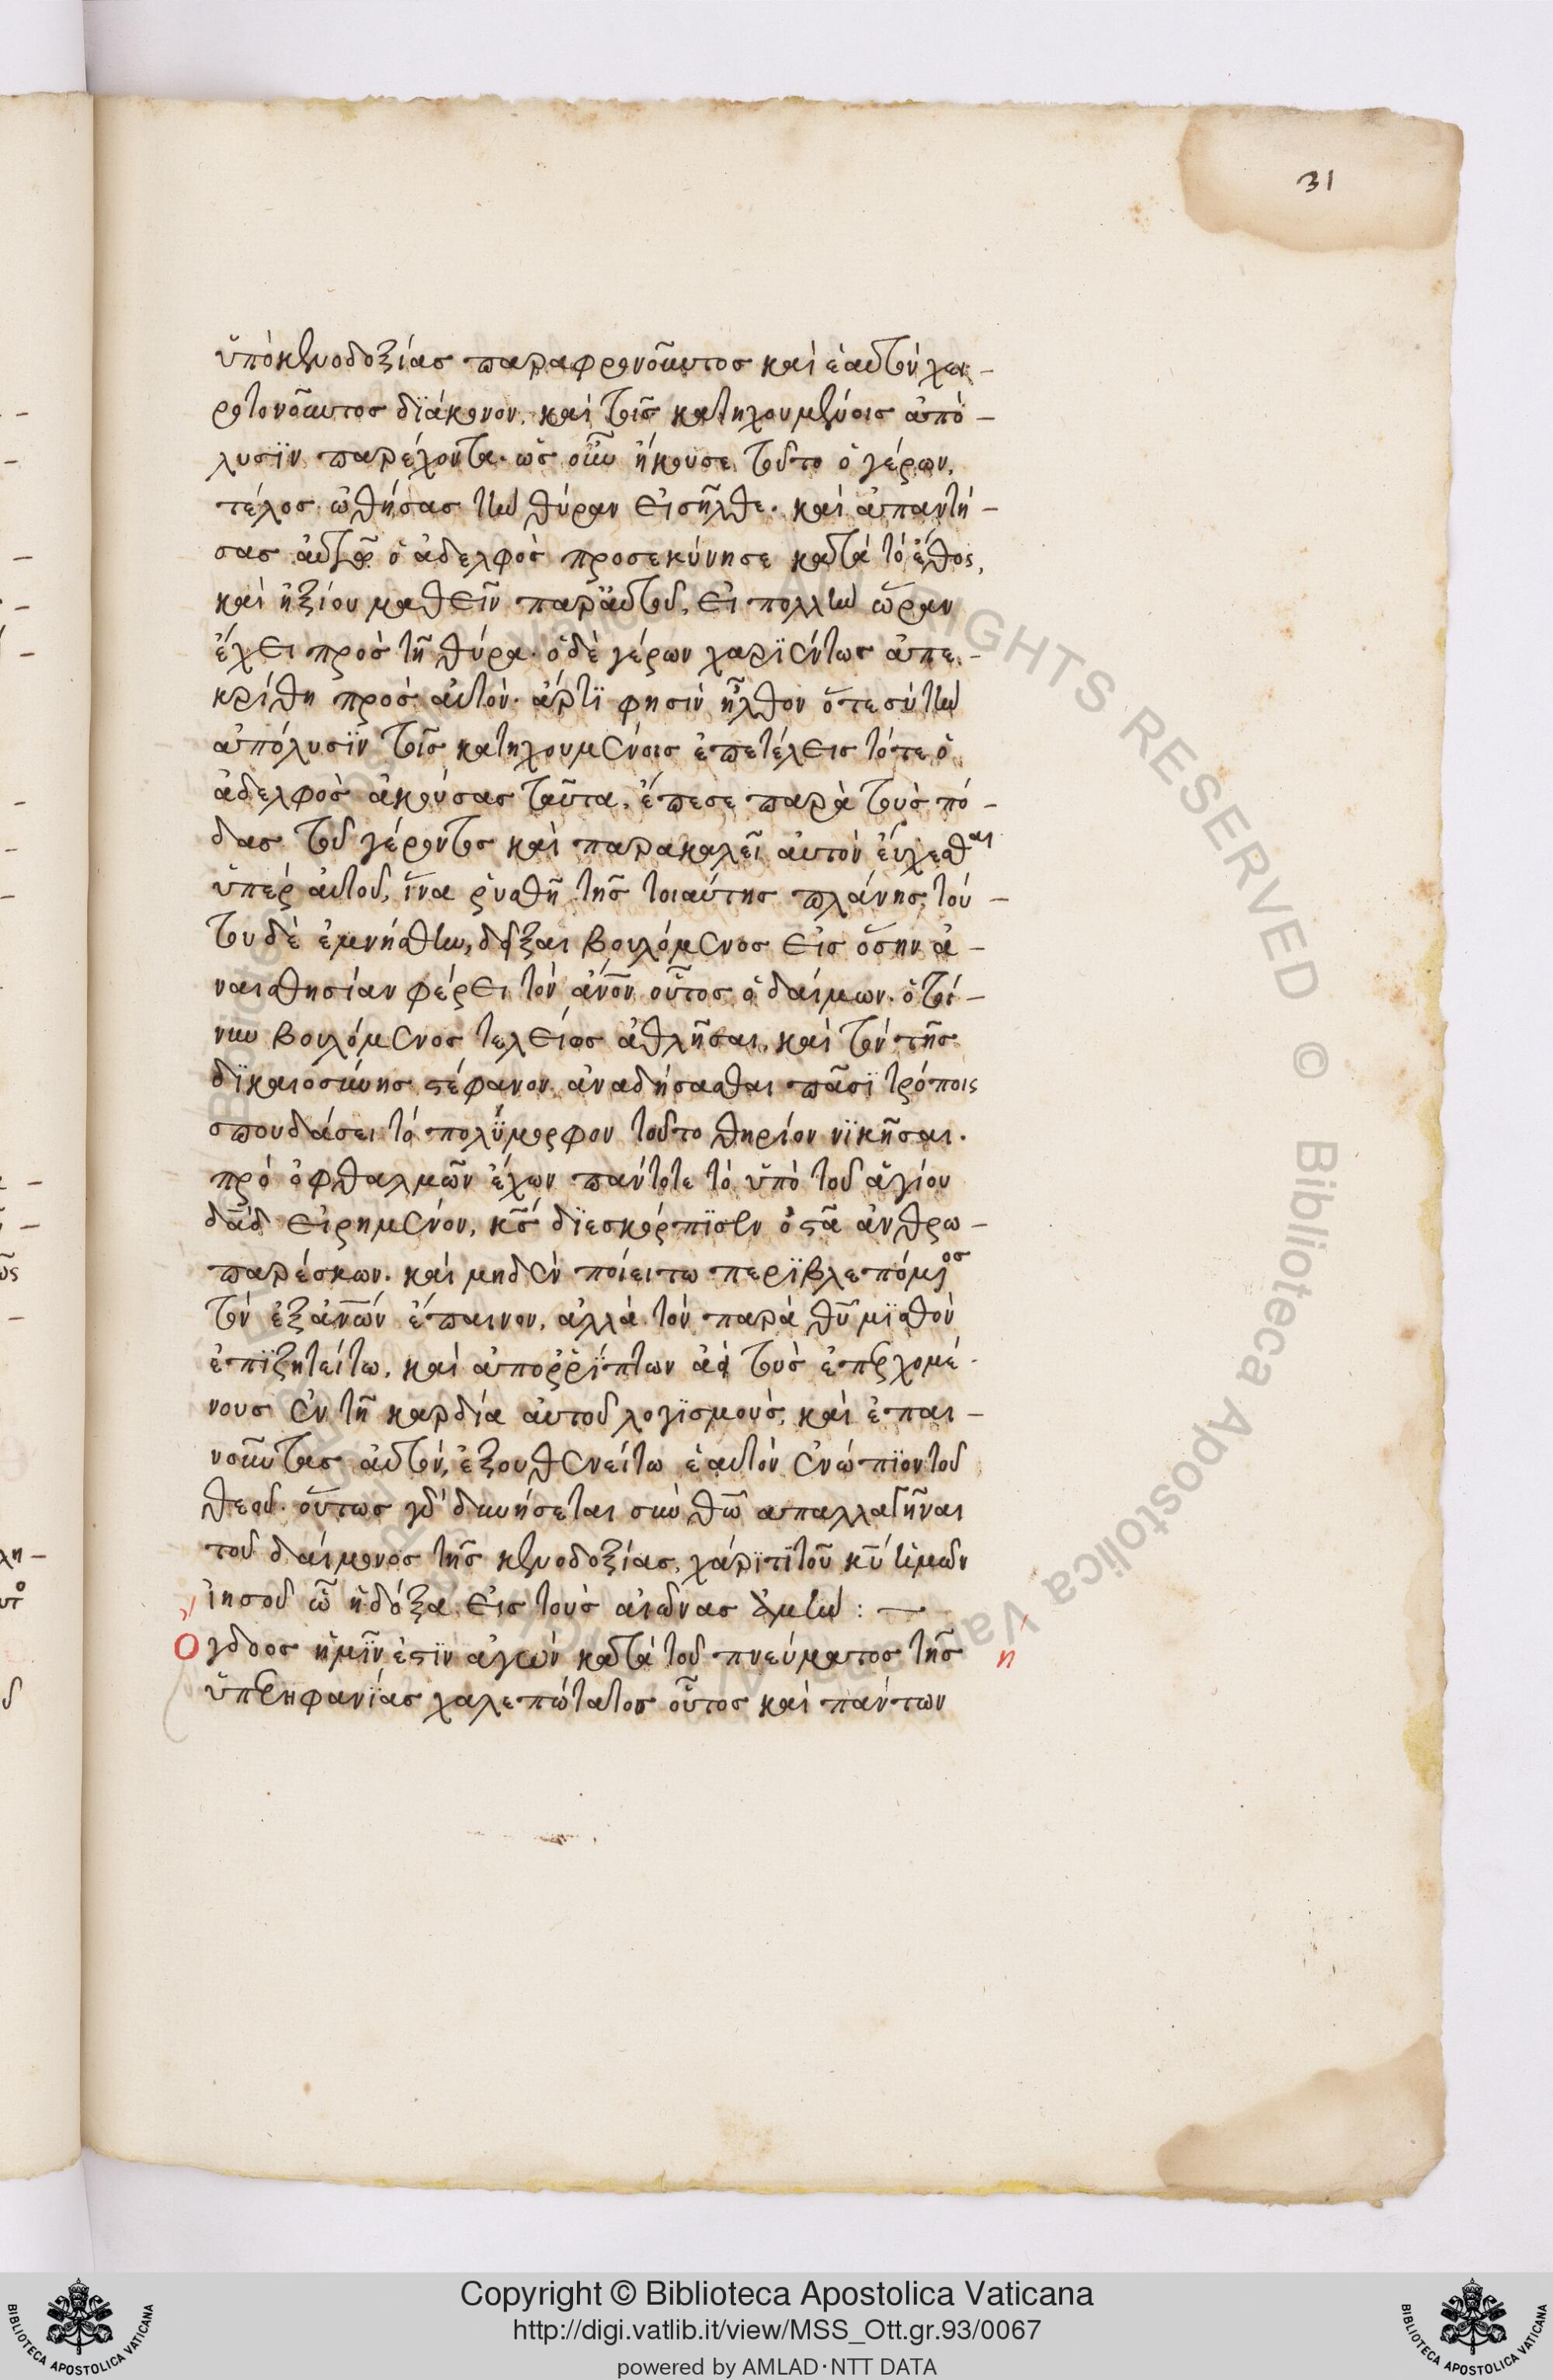 31
ὑπὸ κενοδοξίας παραφρονοῦντος καὶ ἑαυτὸν χει-
ροτονοῦντος διάκονον, καὶ τοῖς κατηχουμένοις ἀπό-
λυσϊν παρέχοντα. ὡς οὖν ἤκουσε τοῦτο ὁ γέρων,
τέλος ὠθήσας τὴν θύραν εἰσῆλθε. καὶ ἀπαντή-
σας αὐτῷ ὁ ἀδελφὸς προσεκύνησε κατὰ τὸ ἔθος,
καὶ ἠξίου μαθεῖν παρ' αὐτοῦ, εἰ πολλὴν ὥραν
ἔχει πρὸς τῆ θύρα. ὁ δὲ γέρων χαρϊέντως ἀπε-
κρίθη πρὸς αὐτόν. ἄρτϊ φησὶν ἦλθον ὅτε σὺ τὴν
ἀπόλυσϊν τοῖς κατηχουμένοις ἐπετέλεις τότε ὁ
ἀδελφὸς ἀκούσας ταῦτα, ἔπεσε παρὰ τοὺς πό-
δας τοῦ γέροντος καὶ παρακαλεῖ αὐτὸν εὔχεσθαι
ὑπὲρ αὐτοῦ, ἵνα ῥυσθῆ τῆς τοιαύτης πλάνης. τού-
του δὲ ἐμνήσθην, δεῖξαι βουλόμενος εἰς ὅσην ἀ-
ναισθησίαν φέρει τὸν ἄνον οὗτος ὁ δαίμων. ὁ τοί-
νυν βουλόμενος τελείως ἀθλῆσαι, καὶ τὸν τῆς
δϊκαιοσύνης στέφανον ἀναδήσασθαι πᾶσϊ τρόποις
σπουδάσει τὸ πολύμορφον τοῦτο θηρίον νϊκῆσαι.
πρὸ ὀφθαλμῶν ἔχων πάντοτε τὸ ὑπὸ τοῦ ἁγίου
δᾶδ εἰρημένον, κς̄ δϊεσκόρπϊσεν ὀστᾶ ἀνθρω-
παρέσκων. καὶ μηδὲν ποιείτω περϊβλεπόμενος
τὸν ἐξ ἀνῶν ἔπαινον, ἀλλὰ τὸν παρὰ θῦ μϊσθὸν
ἐπϊζητείτω, καὶ ἀπορῤϊπτων ἀεὶ τοὺς ἐπερχομέ-
νους ἐν τῆ καρδία αὐτοῦ λογϊσμοὺς, καὶ ἐπαι-
νοῦντας αὐτὸν, ἐξουθενείτω ἑαυτὸν ἐνώπϊον τοῦ
θεοῦ. οὕτως γὰρ δυνήσεται σὺν θῶ ἀπαλλαγῆναι
τοῦ δαίμονος τῆς κενοδοξίας, χάρϊτϊ τοῦ κῦ ἡμῶν
ἰησοῦ ὧ ἡ δόξα εἰς τοὺς αἰῶνας ἀμήν : —
Ογδοος ἡμῖν ἐστϊν ἀγὼν κατὰ τοῦ πνεύματος τῆς η
ὑπερηφανίας χαλεπώτατος οὗτος καὶ πάντων
Copyright © Biblioteca Apostolica Vaticana
http://digi.vatlib.it/view/MSS_Ott.gr.93/0067
powered by AMLAD·NTT DATA